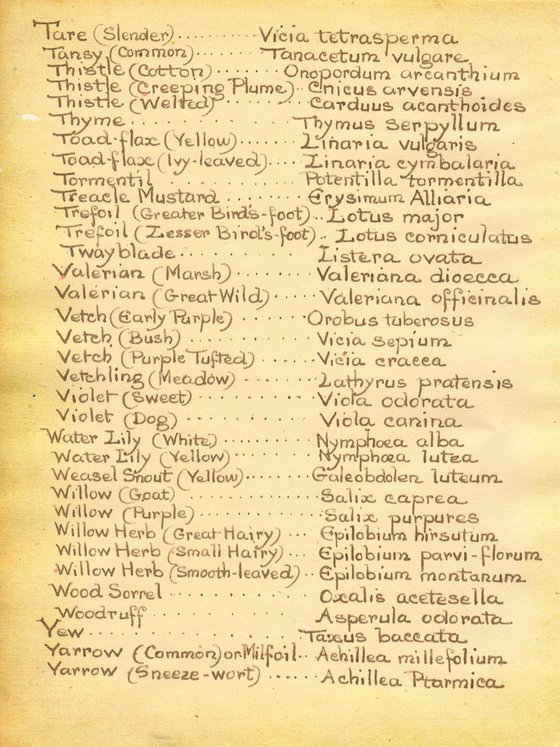 Tare (Slender) .......... Vicia tetrasperma
Tansy (Common) ....... Tanacetum vulgare
Thistle (Cotton) ....... Onopordum arcanthium
Thistle (Creeping Plume) .. Cnicus arvensis
Thistle (Welted) ........ Carduus acanthoides
Thyme .............. Thymus Serpyllum
Toad-flax (Yellow) ...... Linaria vulgaris
Toad-flax (Ivy-leaved) .... Linaria cymbalaria
Tormentil ............ Potentilla tormentilla
Treacle Mustard ........ Erysimum Alliaria
Trefoil (Greater Bird's-foot) .. Lotus major
Trefoil (Lesser Bird's-foot) .. Lotus corniculatus
Twayblade ............ Listera ovata
Valerian (Marsh) ....... Valeriana dioecca
Valerian (Great Wild) ..... Valeriana officinalis
Vetch (Early Purple) ...... Orobus tuberosus
Vetch (Bush) .......... Vicia sepium
Vetch (Purple Tufted) ...... Vicia cracca
Vetchling (Meadow) ...... Lathyrus pratensis
Violet (Sweet) ......... Viola odorata
Violet (Dog) .......... Viola canina
Water Lily (White) ......... Nymphœa alba
Water Lily (Yellow) ....... Nymphœa lutea
Weasel Snout (Yellow) ....... Galeobdolen luteum
Willow (Goat) .......... Salix caprea
Willow (Purple) ......... Salix purpures
Willow Herb (Great Hairy) ... Epilobium hirsutum
Willow Herb (Small Hairy) ... Epilobium parvi-florum
Willow Herb (Smooth-leaved) .. Epilobium montanum
Wood Sorrel ........... Oxalis acetesella
Woodruff ............ Asperula odorata
Yew ................ Taxus baccata
Yarrow (Common) or Milfoil .. Achillea millefolium
Yarrow (Sneeze-wort) ...... Achillea Ptarmica